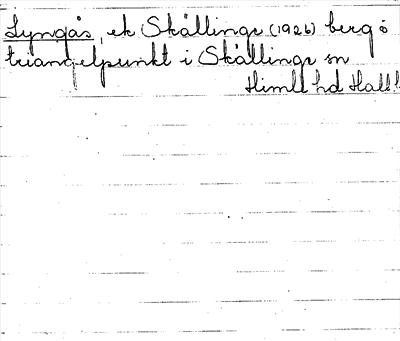 Lyngås, ek Skällinge (1926) berg o
triangelpunkt i Skällinge sn
Himle hd Hall.